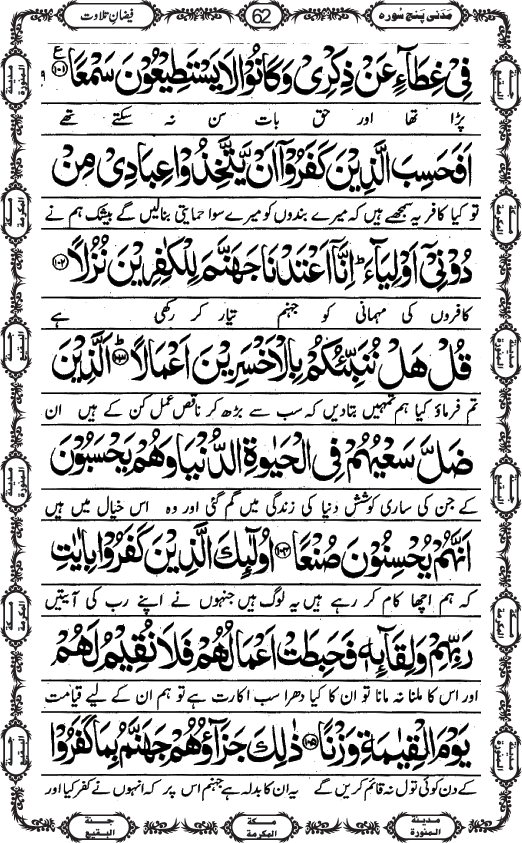 مَدَنی پَنج سُورہ 62 فیضانِ تلاوت
فِیْ غِطَآءٍ عَنْ ذِكْرِیْ وَ كَانُوْا لَا یَسْتَطِیْعُوْنَ سَمْعًا۠(۱۰۱)
پڑا تھا اور حق بات سن نہ سکتے تھے
اَفَحَسِبَ الَّذِیْنَ كَفَرُوْۤا اَنْ یَّتَّخِذُوْا عِبَادِیْ مِنْ
تو کیا کافر یہ سمجھے ہیں کہ میرے بندوں کو میرے سوا حمایتی بنالیں گے بیشک ہم نے
دُوْنِیْۤ اَوْلِیَآءَؕ-اِنَّاۤ اَعْتَدْنَا جَهَنَّمَ لِلْكٰفِرِیْنَ نُزُلًا(۱۰۲)
کافروں کی مہمانی کو جہنم تیار کر رکھی ہے
قُلْ هَلْ نُنَبِّئُكُمْ بِالْاَخْسَرِیْنَ اَعْمَالًاؕ(۱۰۳) اَلَّذِیْنَ
تم فرماؤ کیا ہم تمہیں بتادیں کہ سب سے بڑھ کر ناقص عمل کن کے ہیں ان
ضَلَّ سَعْیُهُمْ فِی الْحَیٰوةِ الدُّنْیَا وَ هُمْ یَحْسَبُوْنَ
کے جن کی ساری کوشش دنیا کی زندگی میں گم گئی اور وہ اس خیال میں ہیں
اَنَّهُمْ یُحْسِنُوْنَ صُنْعًا(۱۰۴) اُولٰٓىٕكَ الَّذِیْنَ كَفَرُوْا بِاٰیٰتِ
کہ ہم اچھا کام کر رہے ہیں یہ لوگ ہیں جنہوں نے اپنے رب کی آیتیں
رَبِّهِمْ وَ لِقَآىٕهٖ فَحَبِطَتْ اَعْمَالُهُمْ فَلَا نُقِیْمُ لَهُمْ
اور اس کا ملنا نہ مانا تو ان کا کیا دھرا سب اکارت ہے تو ہم ان کے لیے قیامت
یَوْمَ الْقِیٰمَةِ وَزْنًا(۱۰۵) ذٰلِكَ جَزَآؤُهُمْ جَهَنَّمُ بِمَا كَفَرُوْا
کے دن کوئی تول نہ قائم کریں گے یہ ان کا بدلہ ہے جہنم اس پر کہ انہوں نے کفر کیا اور
مدینة المنورة مکة المکرمة جنة البقیع